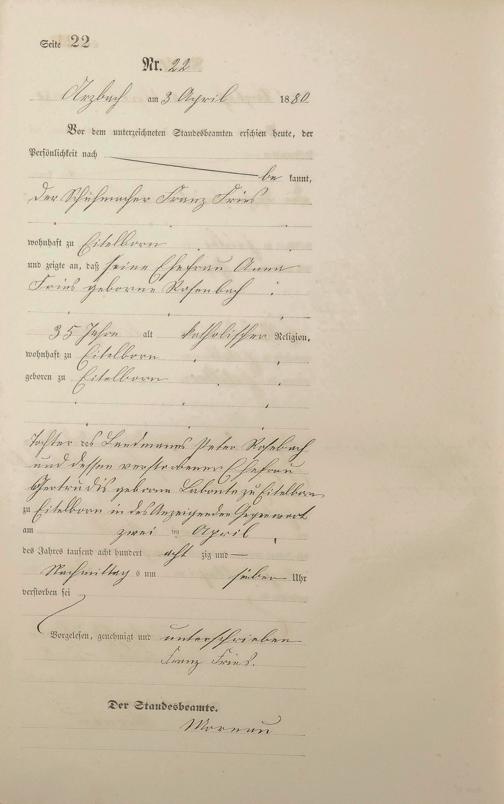 Seite 22
Nr. 22
Arzbach am 3 April 1880
Vor dem unterzeichneten Standesbeamten erschien heute, der
Persönlichkeit nach
be kannt,
der Schuhmacher Franz Fries
wohnhaft zu Eitelborn
und zeigte an, daß seine Ehefrau Anna
Fries geborne Rosenbach
35 Jahre alt katholischer Religion,
wohnhaft zu Eitelborn
geboren zu Eitelborn
Tochter des Landmanns Peter Rosebach
und dessen verstorbener Ehefrau
Gertrudis geborne Labonte zu Eitelborn
zu Eitelborn in des Anzeigenden Gegenwart
am zwei ten April
des Jahres tausend acht hundert acht zig und
Nachmittag s um sieben Uhr
verstorben sei
Vorgelesen, genehmigt und unterschrieben
Franz Fries.
Der Standesbeamte.